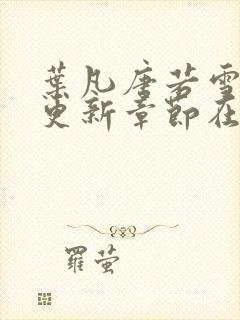 葉凡唐若雪
更新章節在
羅萤